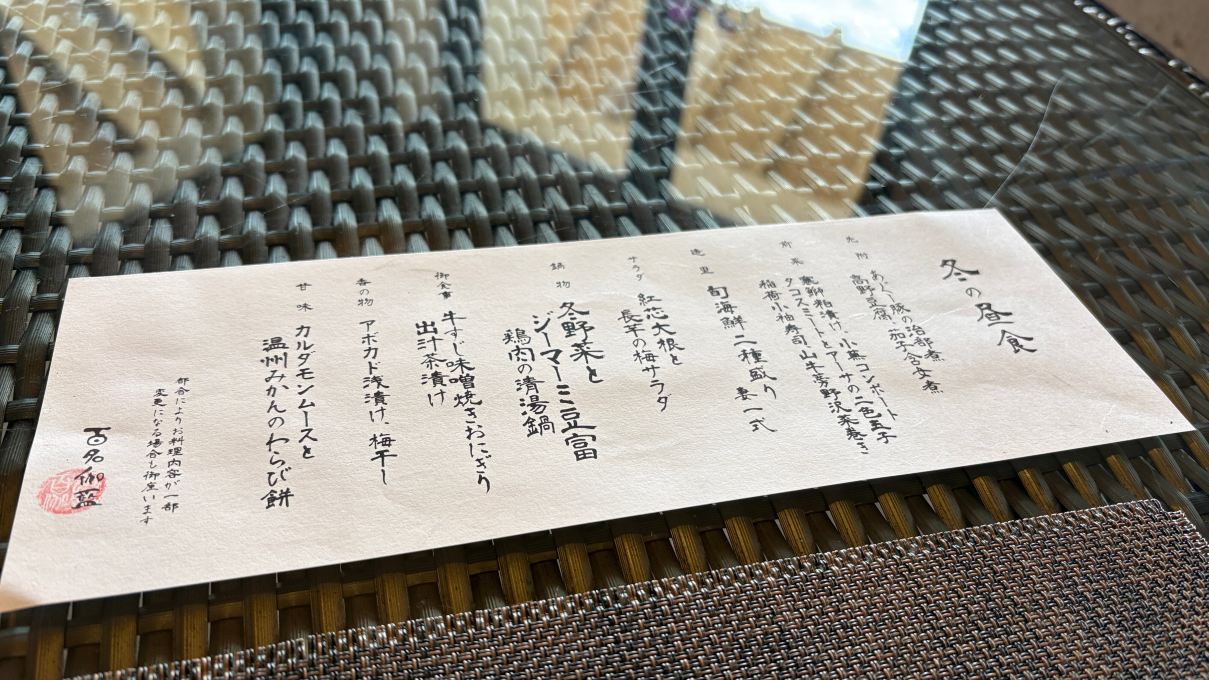 冬の昼食
先附 あぐー豚の治部煮
高野豆腐、茄子含め煮
前菜 寒鰤粕漬け、小蕪コンポート
タコスミートとアーサの二色玉子
稲荷小袖寿司、山牛蒡野沢菜巻き
造里 旬海鮮二種盛り 妻一式
サラダ 紅芯大根と
長芋の梅サラダ
鍋物 冬野菜と
ジーマーミ豆富
鶏肉の清湯鍋
御食事 牛すじ味噌焼きおにぎり
出汁茶漬け
香の物 アボカド浅漬け、梅干し
甘味 カルダモンムースと
温州みかんのわらび餅
都合によりお料理内容が一部
変更になる場合も御座います
百名伽藍